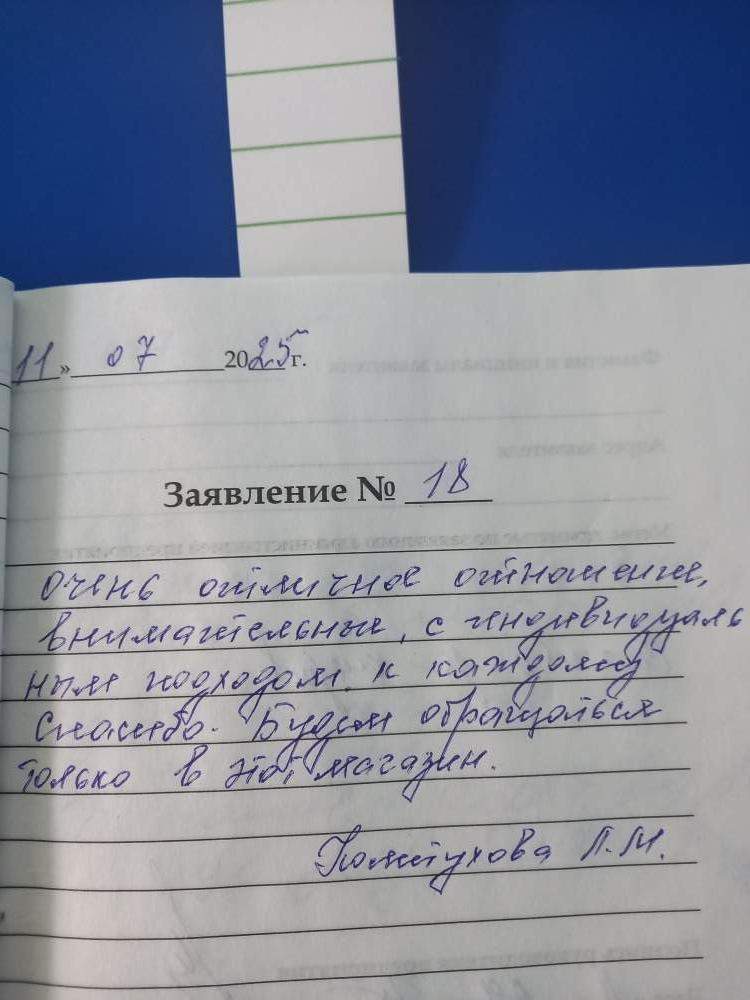 11 » 07 2025 г.
Заявление № 18
очень отличное отношение,
внимательные, с индивидуаль
ным подходом к каждому
Спасибо. Будем обращаться
только в этот магазин.
Л.М.